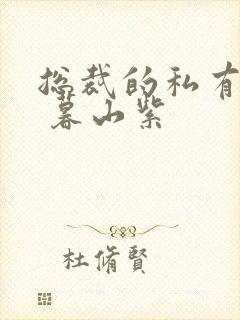 总裁的私有
暮山紫
杜脩賢